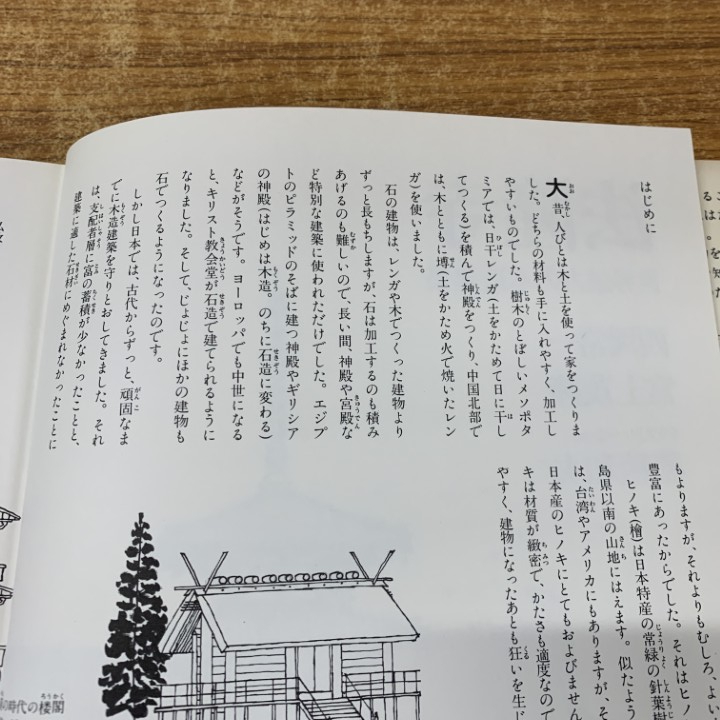 はじめに
大昔、人びとは木と土を使って家をつくりま
した。どちらの材料も手に入れやすく、加工し
やすいものでした。樹木のとぼしいメソポタ
ミアでは、日干レンガ(土をかためて日に干し
てつくる)を積んで神殿をつくり、中国北部で
は、木とともに塼(土をかため火で焼いたレン
ガ)を使いました。
石の建物は、レンガや木でつくった建物より
ずっと長もちしますが、石は加工するのも積み
あげるのも難しいので、長い間、神殿や宮殿な
ど特別な建築に使われただけでした。エジプ
トのピラミッドのそばに建つ神殿やギリシア
の神殿(はじめは木造。のちに石造に変わる)
などがそうです。ヨーロッパでも中世になる
と、キリスト教会堂が石造で建てられるように
なりました。そして、じょじょにほかの建物も
石でつくるようになったのです。
しかし日本では、古代からずっと、頑固なま
でに木造建築を守りとおしてきました。それ
は、支配者層に富の蓄積が少なかったことと、
建築に適した石材にめぐまれなかったことに
もよりますが、それよりもむしろ、よい
豊富にあったからでした。それはヒノ
ヒノキ(檜)は日本特産の常緑の針葉樹
島県以南の山地にはえます。似たよう
は、台湾やアメリカにもありますが、そ
日本産のヒノキにとてもおよびません
キは材質が緻密で、かたさも適度なので
やすく、建物になったあとも狂いを生じ
時代の楼閣